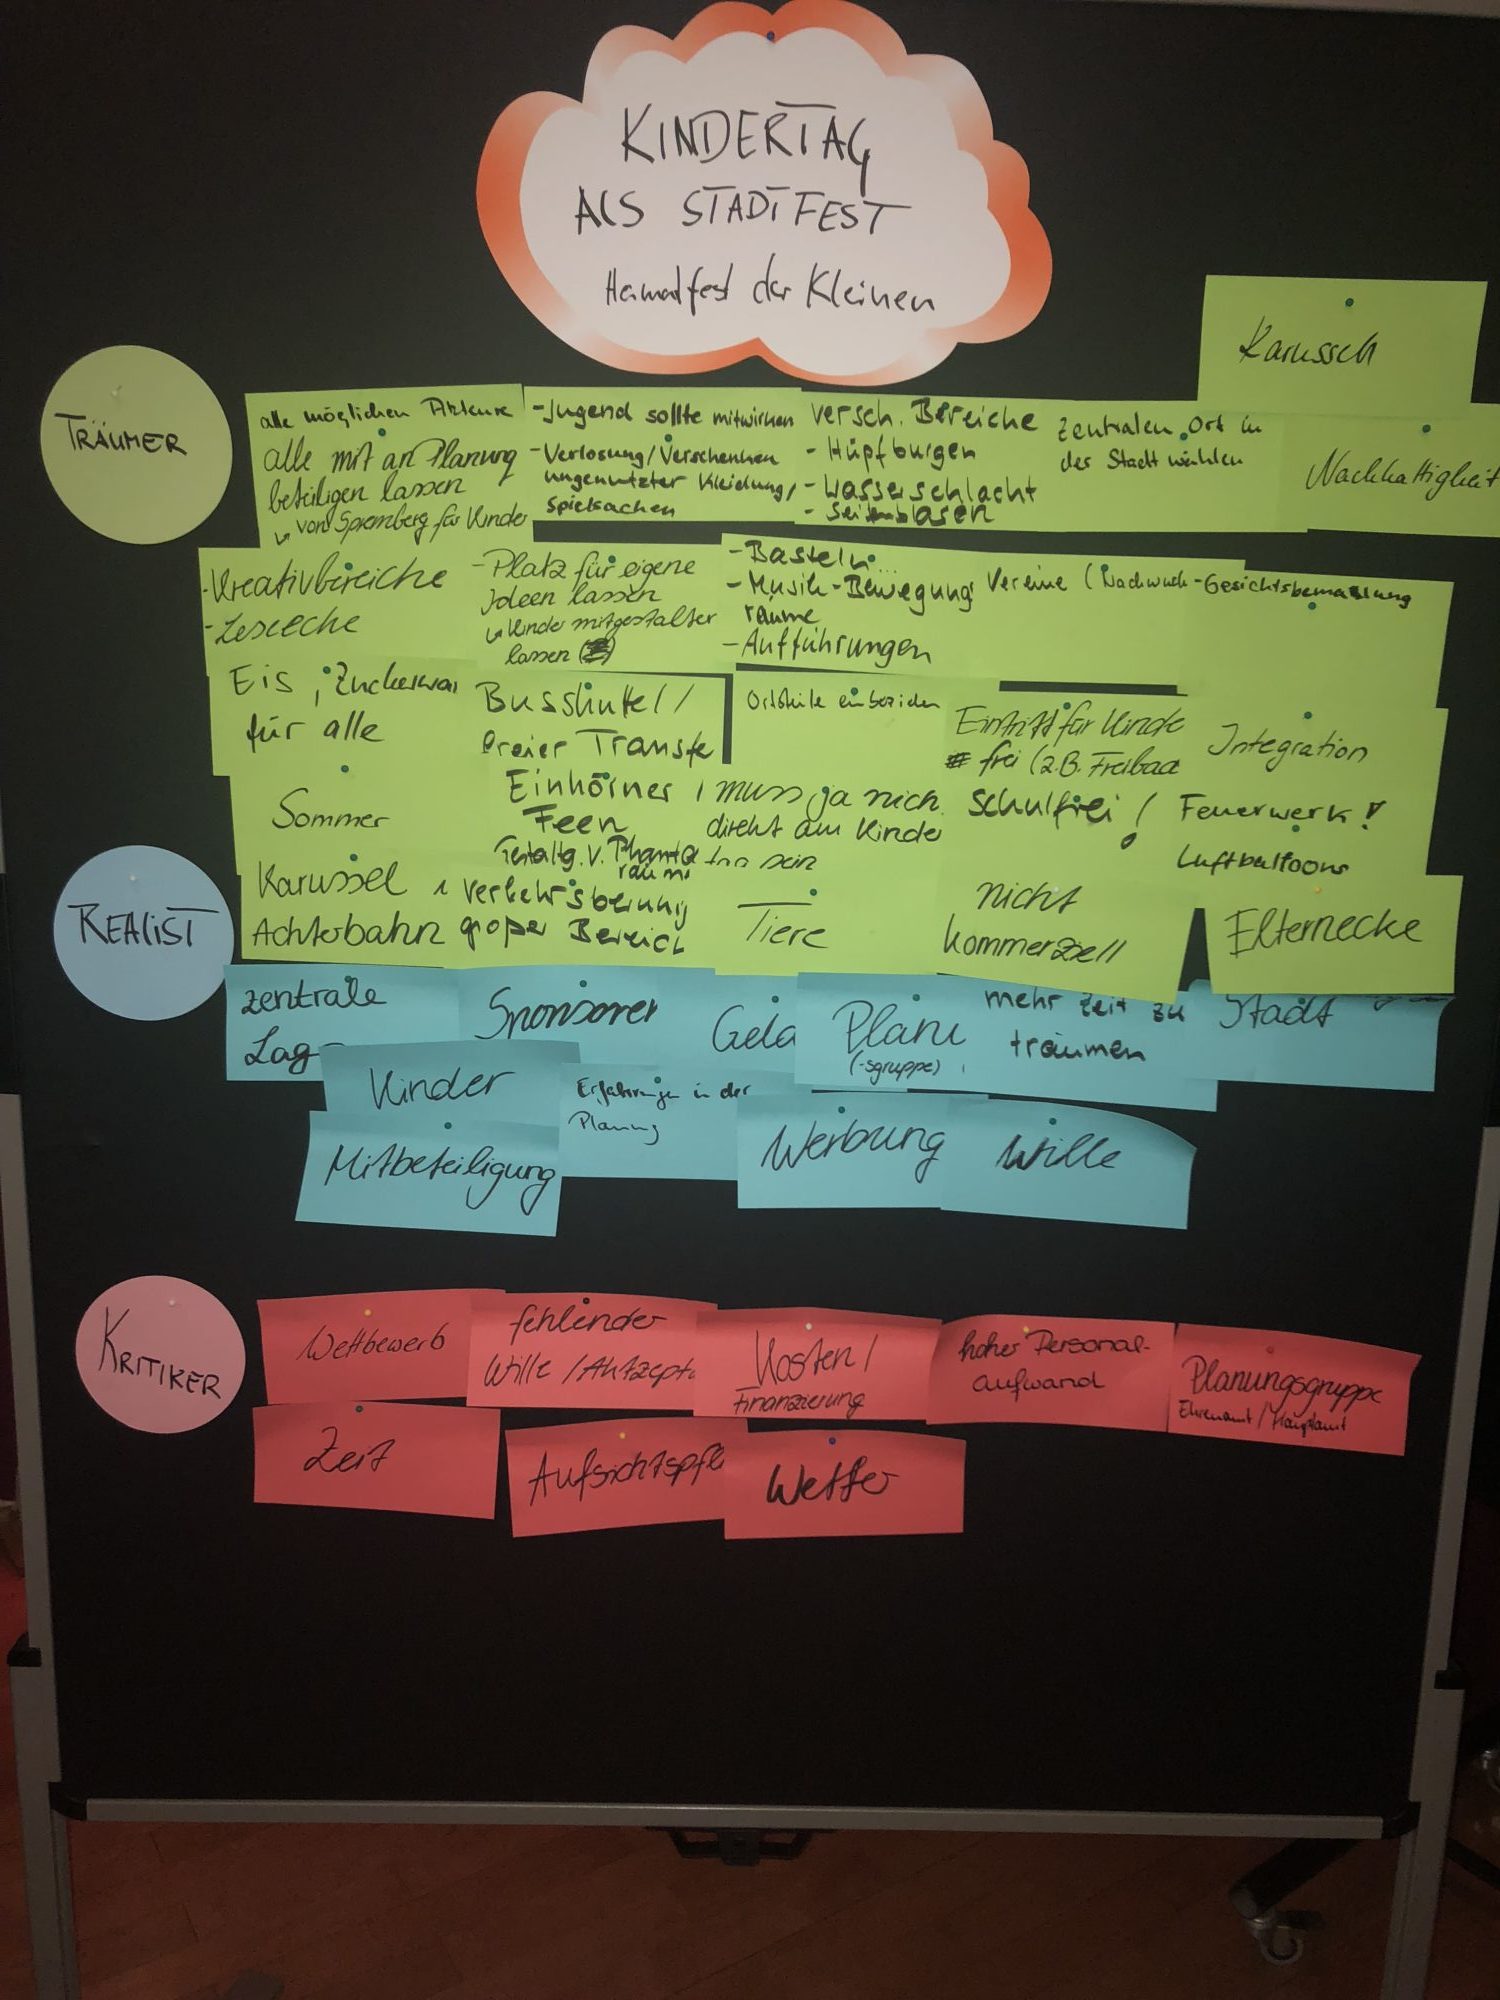 KINDERTAG
ALS STADTFEST
Heimatfest der Kleinen
Karussell
TRÄUMER
alle möglichen Akteure
alle mit an Planung
beteiligen lassen
↳ von Spremberg für Kinder
- Jugend sollte mitwirken
- Verlosung/Verschenken
ungenutzter Kleidung/
Spielsachen
versch. Bereiche
- Hüpfburgen
- Wasserschlacht
- Seifenblasen
zentralen Ort in
der Stadt wählen
Nachhaltigkeit
- Kreativbereiche
- Leseecke
- Platz für eigene
Ideen lassen
↳ Kinder mitgestalten
lassen
- Basteln...
- Musik - Bewegungs
räume
- Aufführungen
Vereine (Nachwuch
- Gesichtsbemalung
Eis, Zuckerwa
für alle
Busshuttel/
freier Transfe
Ortsteile einbeziehen
Eintritt für Kinde
frei (z.B. Freibad
Integration
Sommer
Einhörner
Feen
Gestaltg. v. Phanta
räume
muss ja nich
direkt am Kinde
tag sein
schulfrei!
Feuerwerk!
Luftballoons
Karussel
Achterbahn
Verkehrsberuhig
großer Bereich
Tiere
nicht
kommerziell
Elternecke
REALIST
zentrale
Lag
Sponsoren
Geld
Planu
(-sgruppe)
mehr Zeit zu
träumen
Stadt
Kinder
Erfahrungen in der
Planung
Mitbeteiligung
Werbung
Wille
KRITIKER
Wettbewerb
fehlender
Wille / Akzepta
Kosten/
Finanzierung
hoher Personal-
aufwand
Planungsgruppe
Ehrenamt / Hauptamt
Zeit
Aufsichtspfl
Wetter